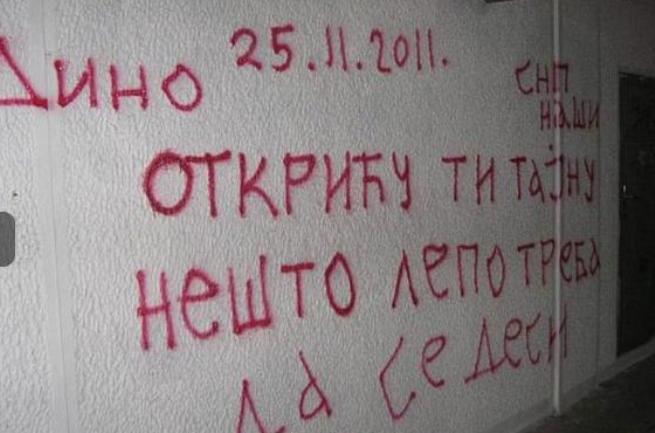 Дино 25.11.2011.
СНП
НАШИ
ОТКРИЋУ ТИ ТАЈНУ
НЕШТО ЛЕПО ТРЕБА
ДА СЕ ДЕСИ